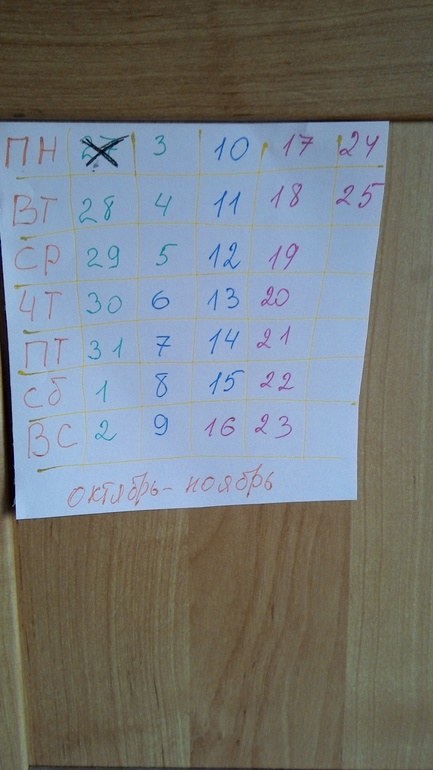 ПН 27 3 10 17 24
ВТ 28 4 11 18 25
СР 29 5 12 19
ЧТ 30 6 13 20
ПТ 31 7 14 21
Сб 1 8 15 22
ВС 2 9 16 23
октябрь- ноябрь